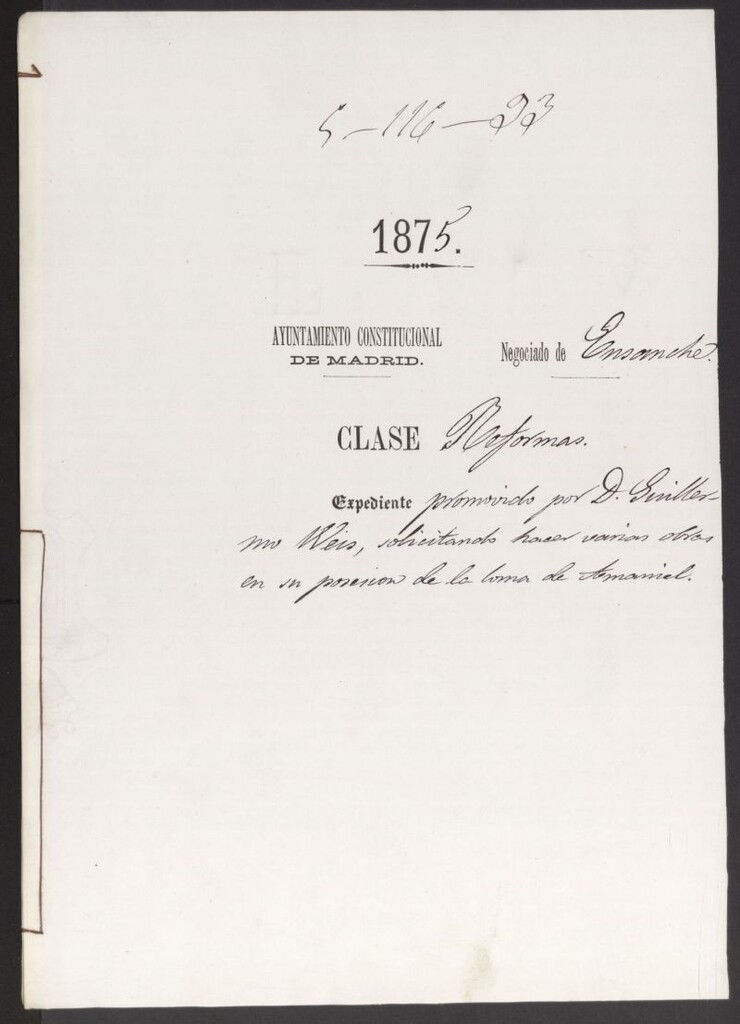 5-116-23
1875.
AYUNTAMIENTO CONSTITUCIONAL
DE MADRID.
Negociado de Ensanche.
CLASE Reformas.
Expediente promovido por D. Guiller-
mo Weis, solicitando hacer varias obras
en su posesion de la loma de Amaniel.